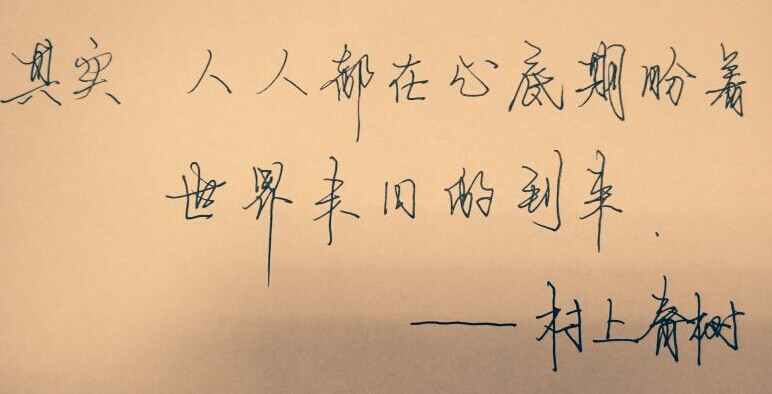 其实 人人都在心底期盼着
世界末日的到来.
——村上春树